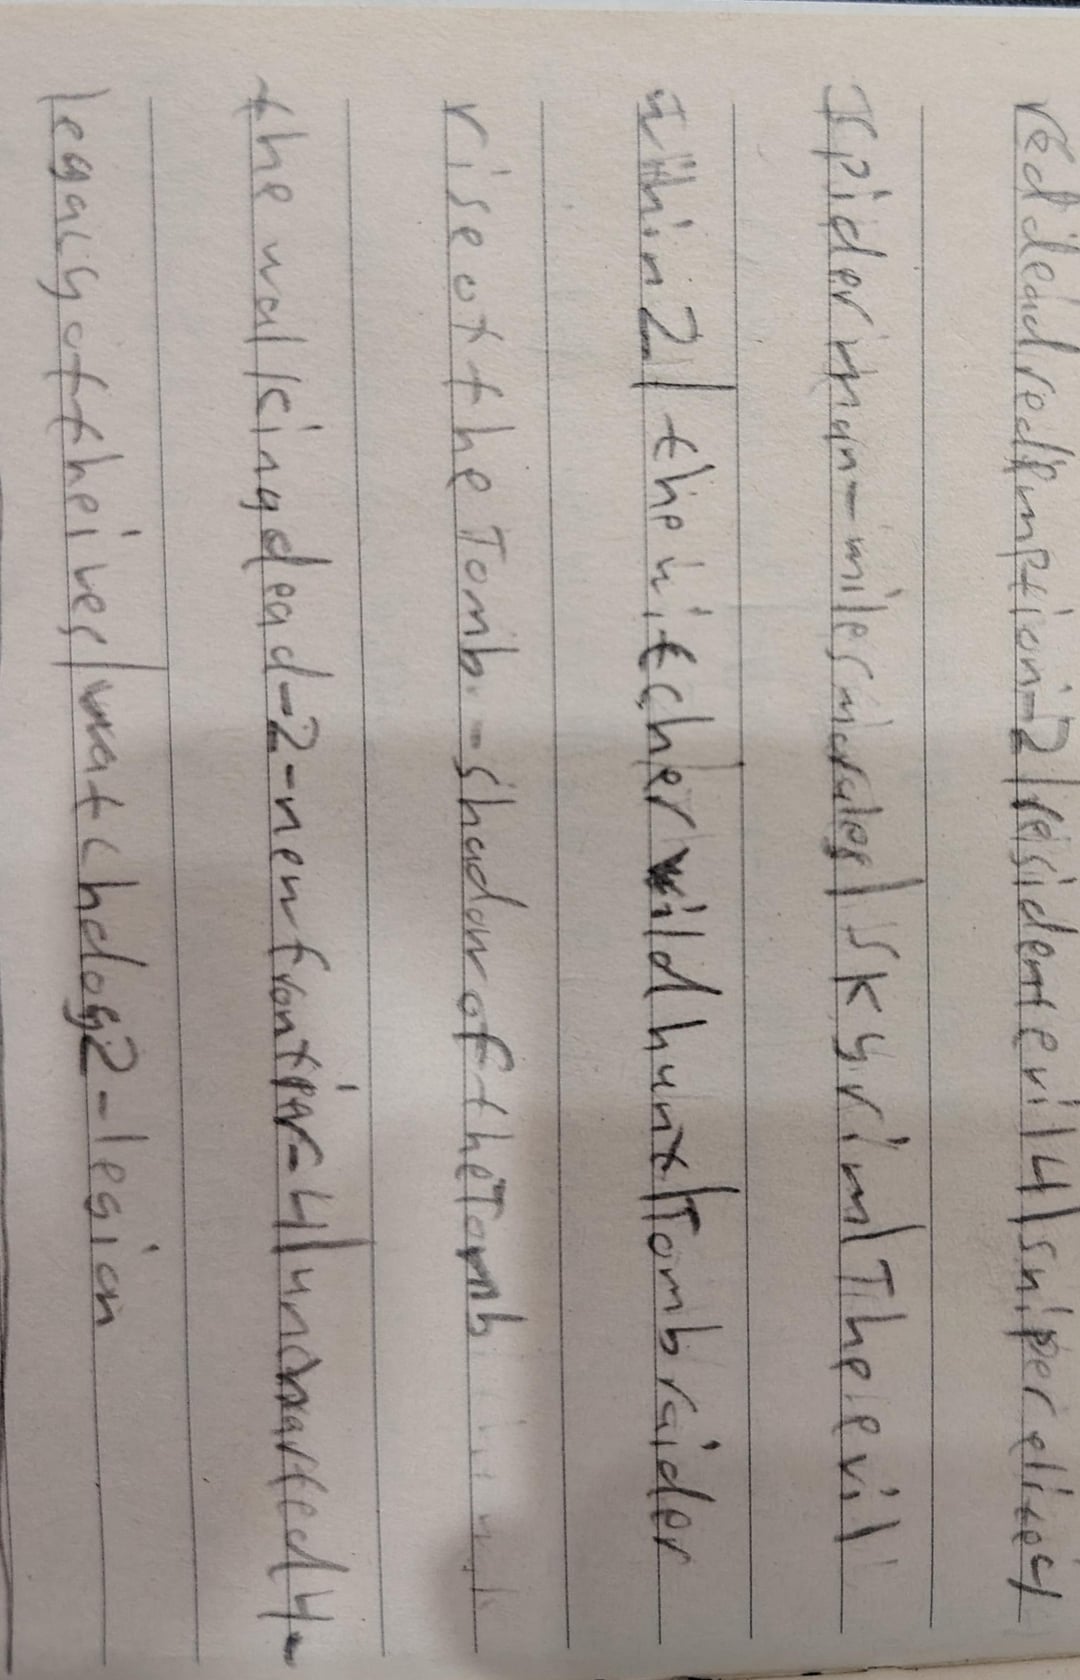 red deadredemption-2|residentevil4|sniperelite4
spiderman-milesmorales|skyrim|Theevil
within2|thewitcherwildhunt|Tombraider
riseoftheTomb-shadowoftheTomb
thewalkingdead-2-newfrontier-4|unchxarted4-
legacyoftheives|watchdog2-legion